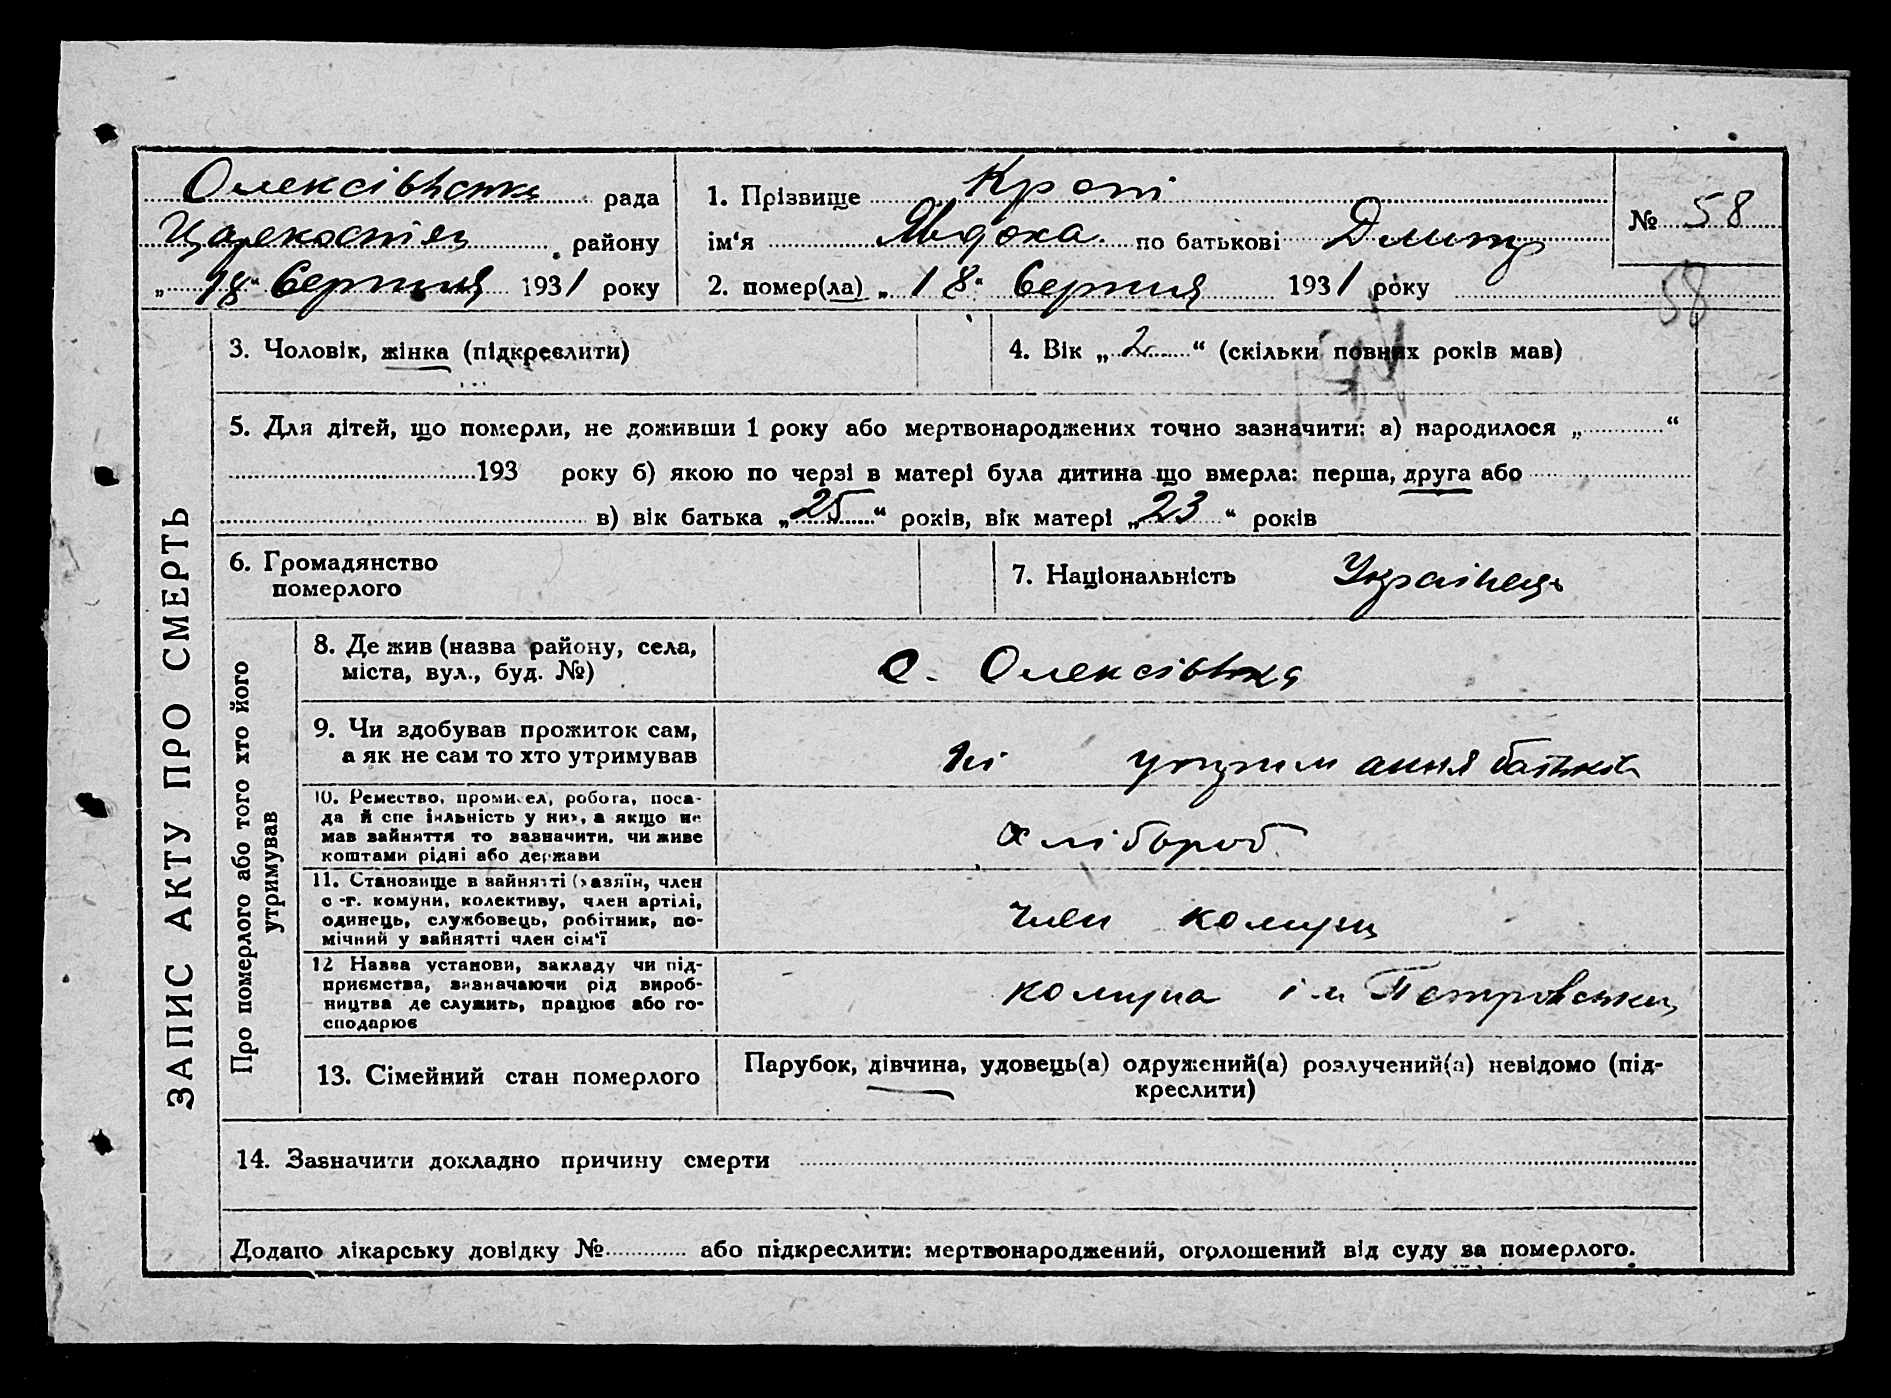 Олексівська рада
району
„18“ Серпня 1931 року
1. Прізвище
ім‘я Явдоха по батькові Дмитр
2. помер(ла) „18“ Серпня 1931 року
№ 58
58
ЗАПИС АКТУ ПРО СМЕРТЬ
3. Чоловік, жінка (підкреслити)
4. Вік „2“ (скільки повних років мав)
5. Для дітей, що померли, не доживши 1 року або мертвонароджених точно зазначити: а) народилося „ “
193 року б) якою по черзі в матері була дитина що вмерла: перша, друга або
в) вік батька „25“ років, вік матері „23“ років
6. Громадянство
померлого
7. Національність Українець
Про померлого або того хто його
утримував
8. Де жив (назва району, села,
міста, вул., буд. №)
с. Олексівка
9. Чи здобував прожиток сам,
а як не сам то хто утримував
ні утримання батьків
10. Ремество, промисел, робота, поса-
да й спеціяльність у них, а якщо не
мав зайняття то зазначити, чи живе
коштами рідні або держави
хлібороб
11. Становище в зайнятті (хазяїн, член
с.-г. комуни, колективу, член артілі,
одинець, службовець, робітник, по-
мічний у зайнятті член сім‘ї
член комуни
12 Назва установи, закладу чи під-
приємства, зазначаючи рід вироб-
ництва де служить, працює або го-
сподарює
комуна ім Петровськ
13. Сімейний стан померлого
Парубок, дівчина, удовець(а) одружений(а) розлучений(а) невідомо (під-
креслити)
14. Зазначити докладно причину смерти
Додано лікарську довідку № або підкреслити: мертвонароджений, оголошений від суду за померлого.